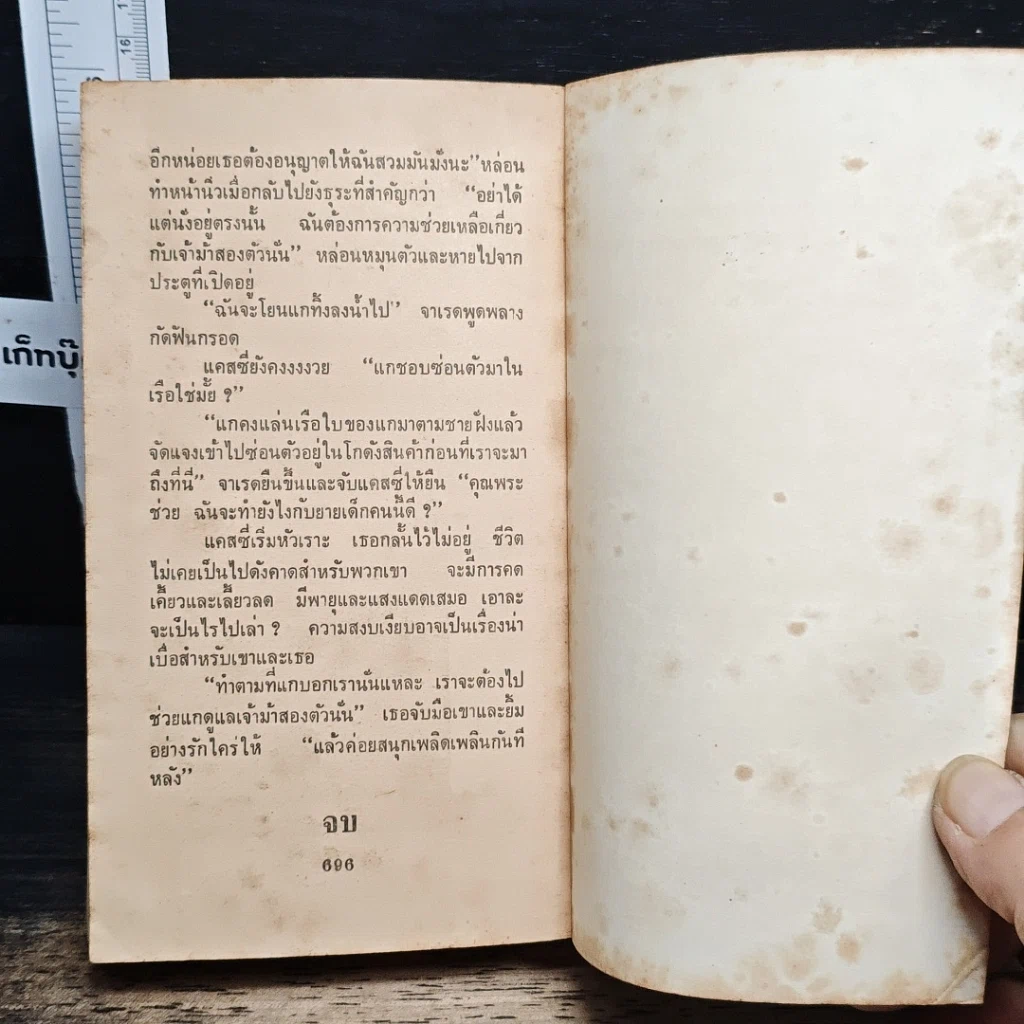 อีกหน่อยเธอต้องอนุญาตให้ฉันสวมมันมั่งนะ”หล่อน
ทำหน้านิ่วเมื่อกลับไปยังธุระที่สำคัญกว่า “อย่าได้
แต่นั่งอยู่ตรงนั้น ฉันต้องการความช่วยเหลือเกี่ยว
กับเจ้าม้าสองตัวนั่น” หล่อนหมุนตัวและหายไปจาก
ประตูที่เปิดอยู่
“ฉันจะโยนแกทิ้งลงน้ำไป” จาเรดพูดพลาง
กัดฟันกรอด
แคสซี่ยังคงงงงวย “แกชอบซ่อนตัวมาใน
เรือใช่มั้ย ?”
“แกคงแล่นเรือใบของแกมาตามชายฝั่งแล้ว
จัดแจงเข้าไปซ่อนตัวอยู่ในโกดังสินค้าก่อนที่เราจะมา
ถึงที่นี่” จาเรดยืนขึ้นและจับแคสซี่ให้ยืน “คุณพระ
ช่วย ฉันจะทำยังไงกับยายเด็กคนนี้ดี ?”
แคสซี่เริ่มหัวเราะ เธอกลั้นไว้ไม่อยู่ ชีวิต
ไม่เคยเป็นไปดังคาดสำหรับพวกเขา จะมีการคด
เคี้ยวและเลี้ยวลด มีพายุและแสงแดดเสมอ เอาละ
จะเป็นไรไปเล่า ? ความสงบเงียบอาจเป็นเรื่องน่า
เบื่อสำหรับเขาและเธอ
“ทำตามที่แกบอกเรานั่นแหละ เราจะต้องไป
ช่วยแกดูแลเจ้าม้าสองตัวนั่น” เธอจับมือเขาและยิ้ม
อย่างรักใคร่ให้ “แล้วค่อยสนุกเพลิดเพลินกันที
หลัง”
จบ
696
เก็ทบุ๊
16